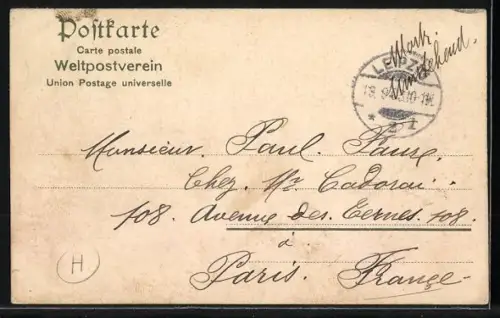 Postkarte
Carte postale
Weltpostverein
Union Postage universelle
Mark.
Umstehend.
LEIPZIG
Monsieur. Paul. Faure.
Chez. Mr Cadorai.
108. Avenue des. Ternes. 108.
à
Paris. France
H